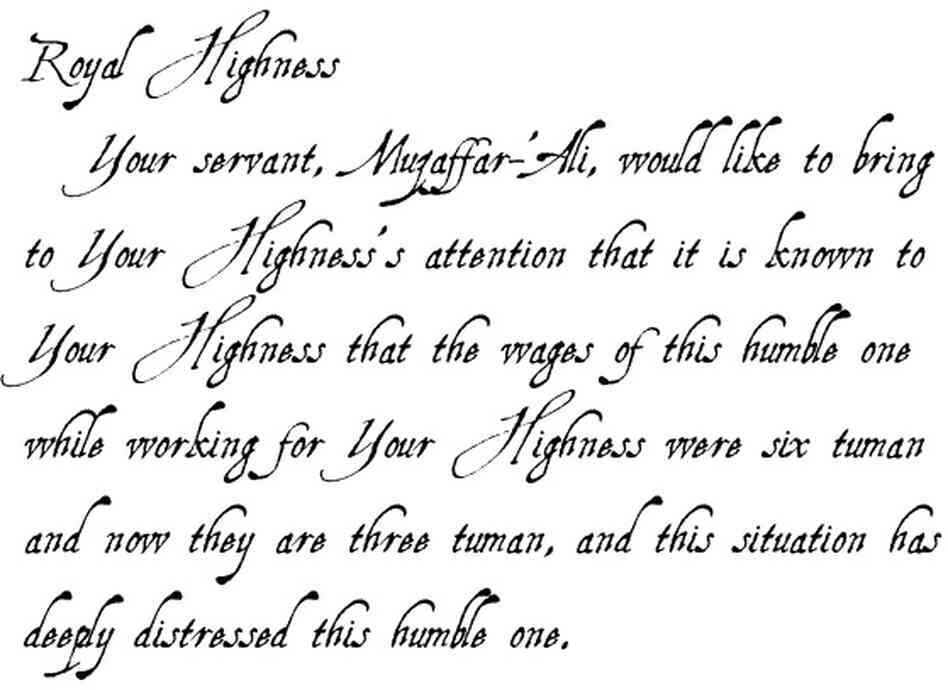 Royal Highness
Your servant, Muzaffar-'Ali, would like to bring
to Your Highness's attention that it is known to
Your Highness that the wages of this humble one
while working for Your Highness were six tuman
and now they are three tuman, and this situation has
deeply distressed this humble one.